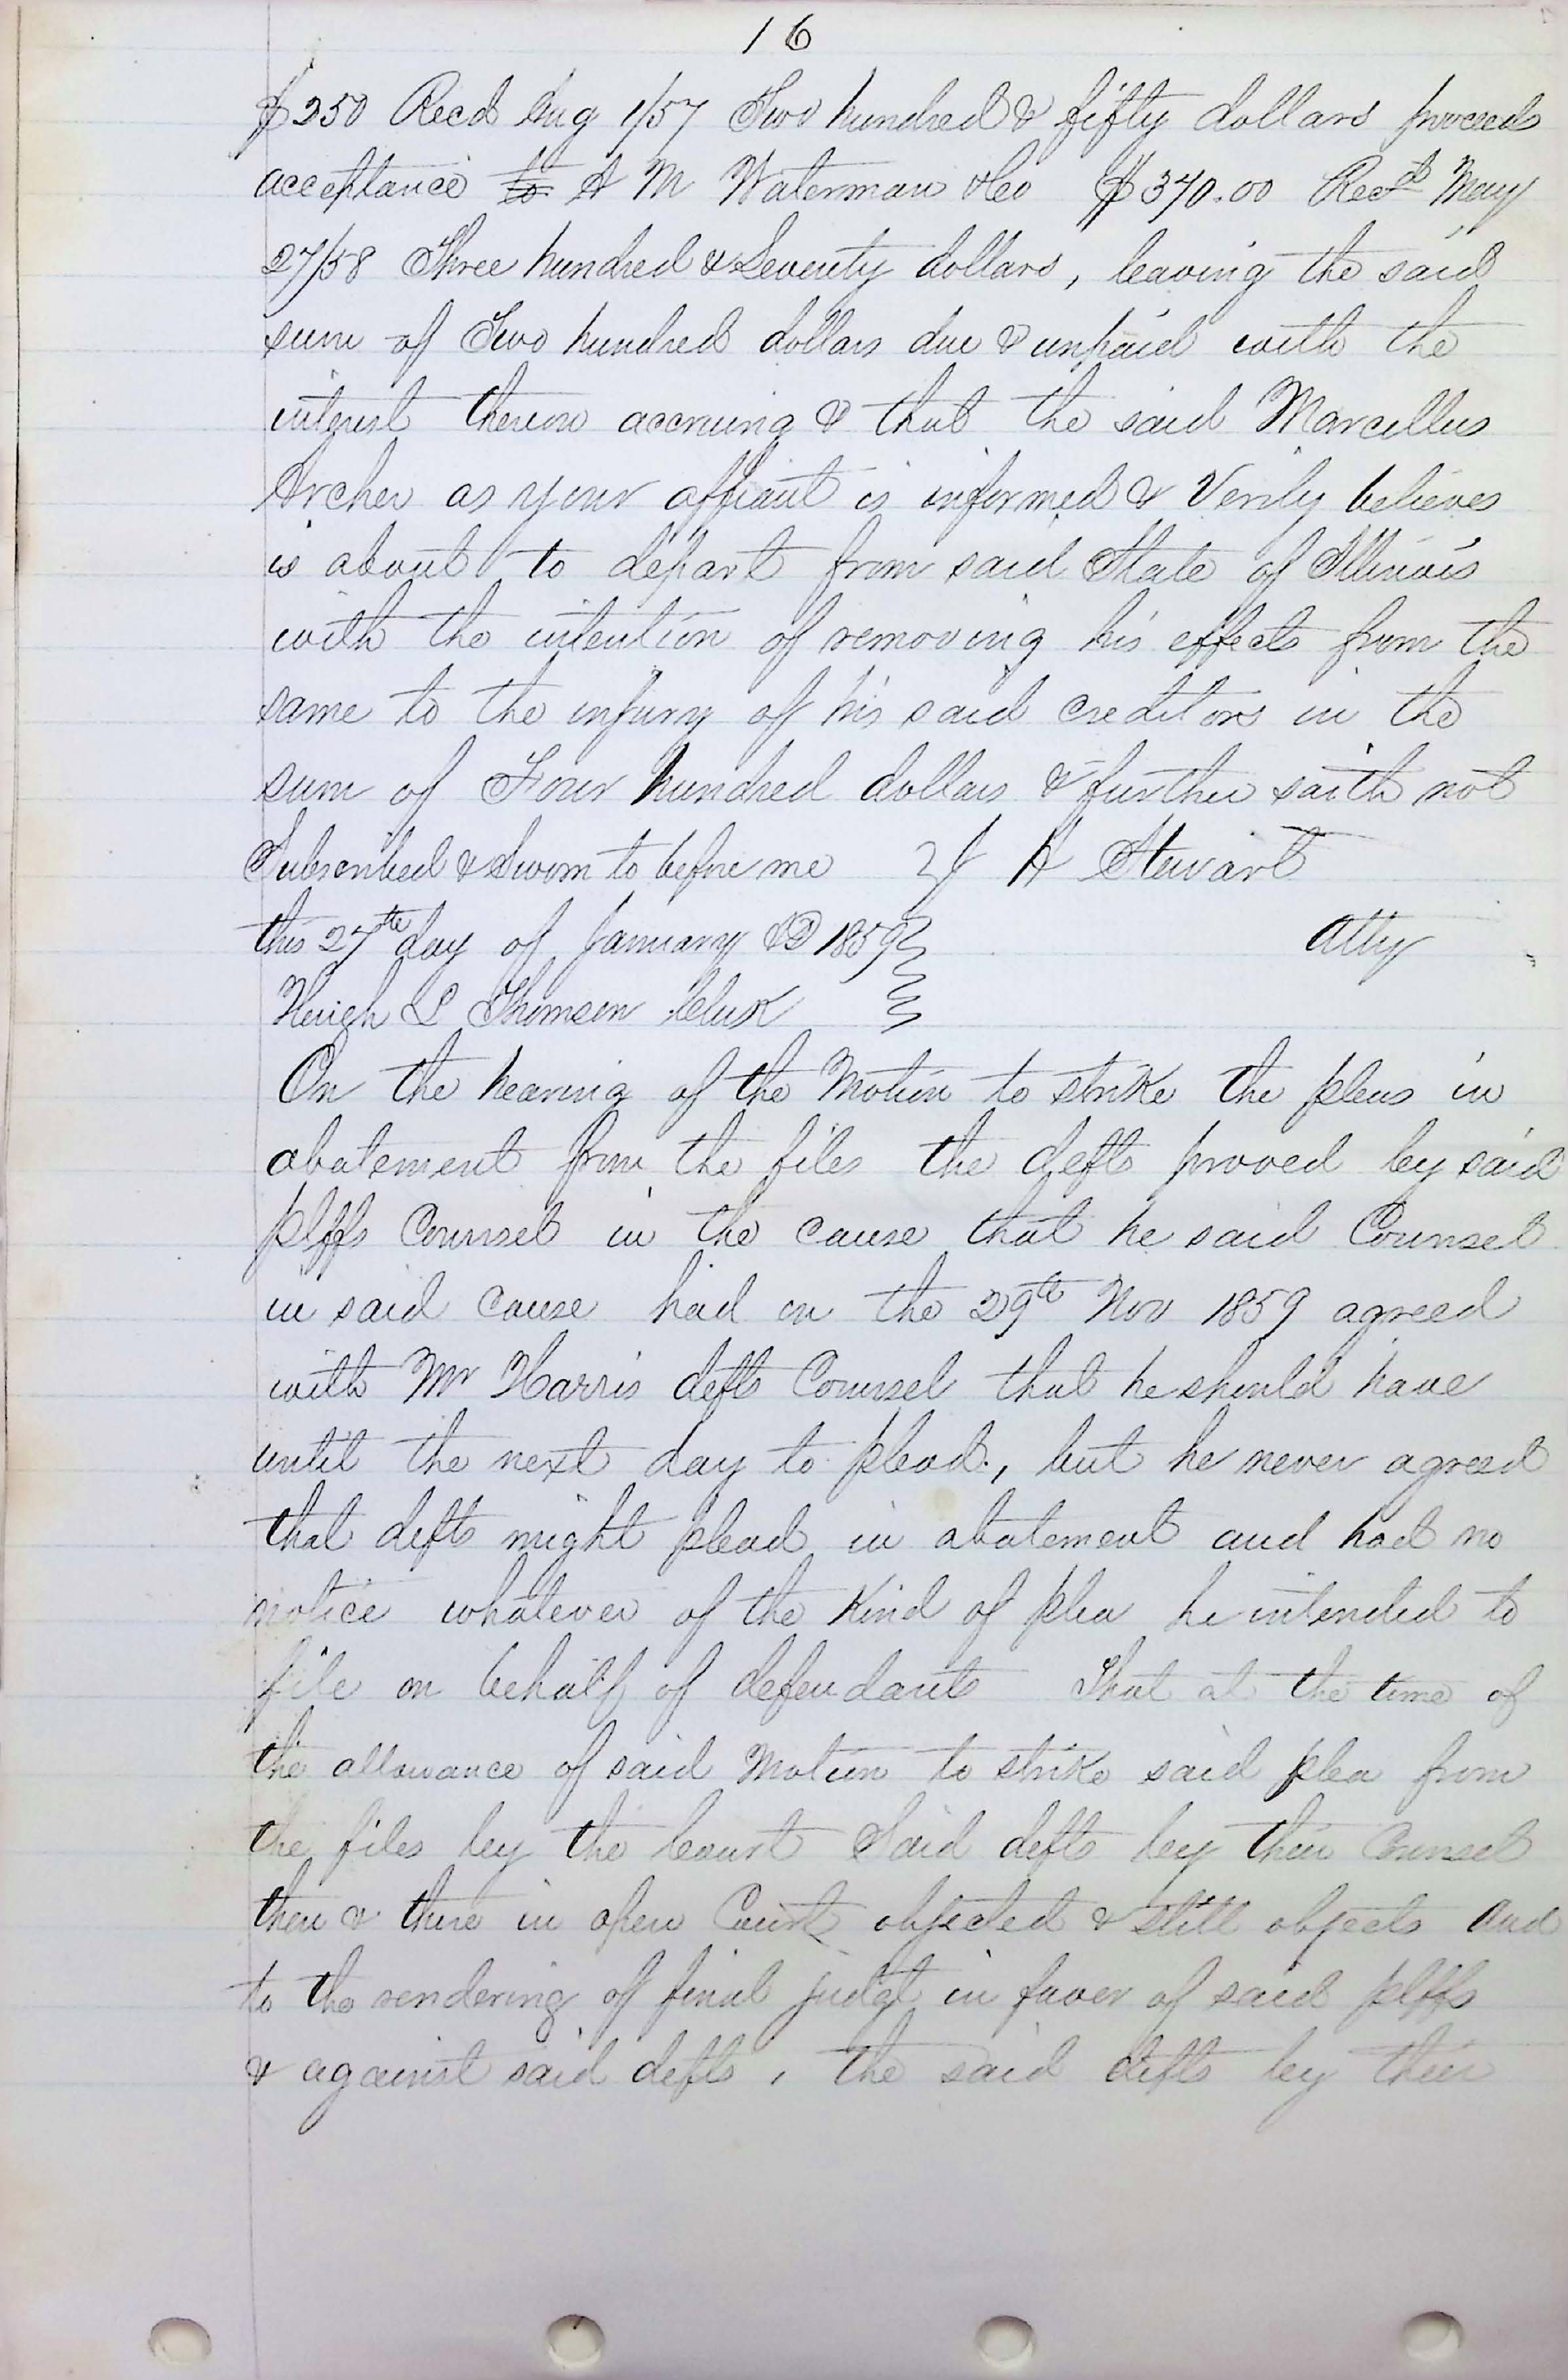 16
$250 Recd Aug 1/57 Two hundred & fifty dollars proceeds
acceptance to A M Waterman & Co $370.00 Recd May
27/58 Three hundred & Seventy dollars, leaving the said
sum of Two hundred dollars due & unpaid with the
interest thereon accruing & that the said Marcellus
Archer as your affiant is informed & Verily believes
is about to depart from said State of Illinois
with the intention of removing his effects from the
same to the injury of his said creditors in the
sum of Four hundred dollars & further saith not
Subscribed & Sworn to before me J A Stewart
this 27th day of January AD 1859 Atty
Hugh L Thomson Clerk
On the hearing of the Motion to strike the pleas in
abatement from the files the defts proved by said
plffs Counsel in the cause that he said Counsel
in said cause had on the 29th Nov 1859 agreed
with Mr Harris defts Counsel that he should have
until the next day to plead, but he never agreed
that defts might plead in abatement and had no
notice whatever of the Kind of plea he intended to
file on behalf of defendants That at the time of
the allowance of said Motion to strike said plea from
the files by the Court Said defts by their Counsel
then & there in open Court objected & still objects and
to the rendering of final judgt in favor of said plffs
& against said defts, the said defts by their